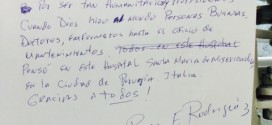 Por ser tan Humanitarios y Profesionales
Cuando Dios hizo al mundo Personas Buenas
Doctores, Enfermeros hasta el oficio de
Mantenimientos Todos en este Hospital
Pensó en este Hospital Santa Maria de Misericordia
en la Ciudad de Perugia Italia.
Gracias a todos!
Rodriguez